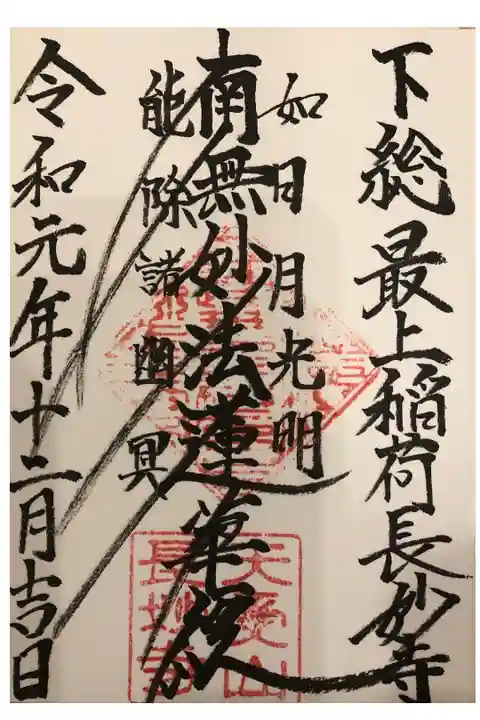 下総最上稲荷長妙寺
如日月光明
南無妙法蓮華経
能除諸幽冥
令和元年十二月吉日
天受山
長妙寺